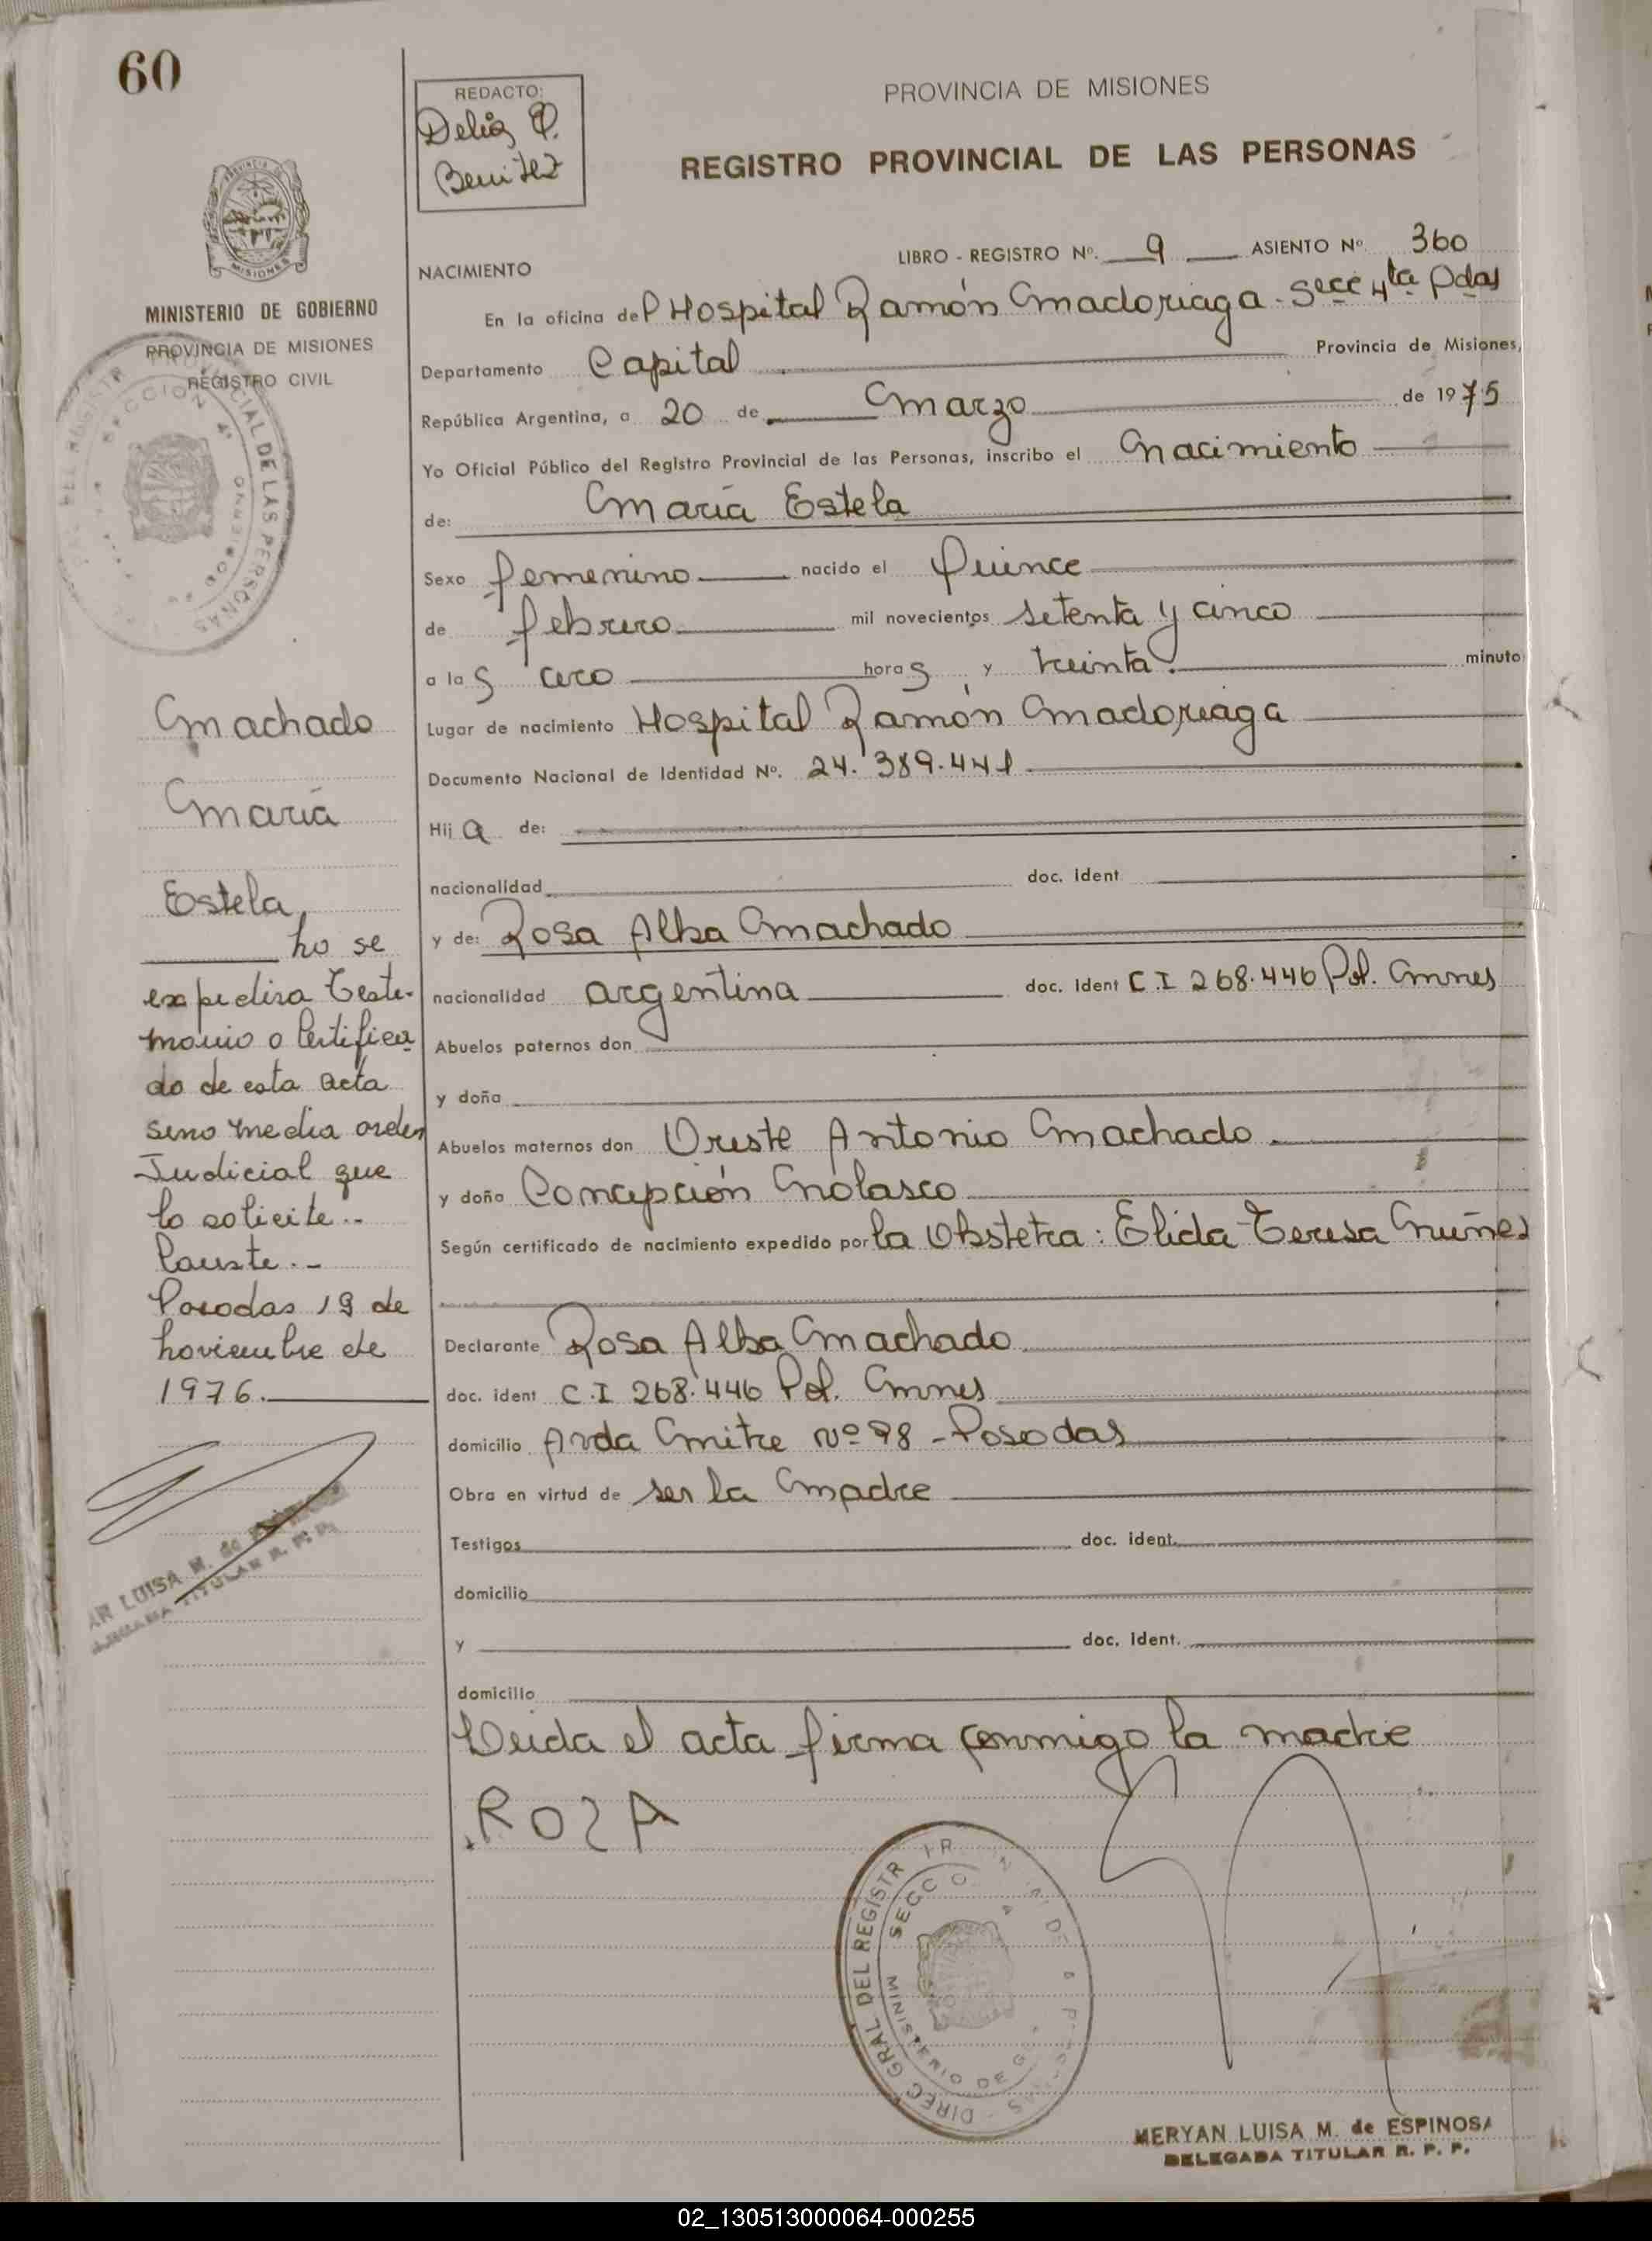 60
REDACTO:
Delia
Benitez
PROVINCIA DE MISIONES
REGISTRO PROVINCIAL DE LAS PERSONAS
MISIONES
MINISTERIO DE GOBIERNO
PROVINCIA DE MISIONES
REGISTRO CIVIL
LIBRO - REGISTRO Nº. 9 ASIENTO Nº 360
NACIMIENTO
En la oficina del Hospital Ramón Madoriaga - Secc 4ta Pdas
Departamento Capital Provincia de Misiones,
República Argentina, a 20 de Marzo de 1975
Yo Oficial Público del Registro Provincial de las Personas, inscribo el Nacimiento
de: María Estela
Sexo femenino nacido el Quince
de febrero mil novecientos setenta y cinco
a las cero horas y treinta. minuto
Lugar de nacimiento Hospital Ramón Madoriaga
Documento Nacional de Identidad Nº. 24.389.441
Hija de:
nacionalidad doc. ident
y de: Rosa Alba Machado
nacionalidad argentina doc. ident C.I 268.446 Pol. Mnes
Abuelos paternos don
y doña
Abuelos maternos don Oreste Antonio Machado.
y doña Concepción Nolasco
Según certificado de nacimiento expedido por la Obstetra: Elida Teresa Nuñez
Declarante Rosa Alba Machado
doc. ident C.I 268.446 Pol. Mnes
domicilio Avda Mitre Nº 98 - Posadas
Obra en virtud de ser la Madre
Testigos doc. ident.
domicilio
y doc. ident.
domicilio
Leida el acta firma conmigo la madre
ROSA
Machado
María
Estela
No se
expedira Testi-
monio o Certifica
do de esta acta
sino media orden
Judicial que
lo solicite..
Conste.-
Posadas 19 de
noviembre de
1976.
LUISA M. de
TITULAR R. P. P.
DIREC GRAL DEL REGISTR
MERYAN LUISA M. de ESPINOSA
DELEGADA TITULAR R. P. P.
02_130513000064-000255